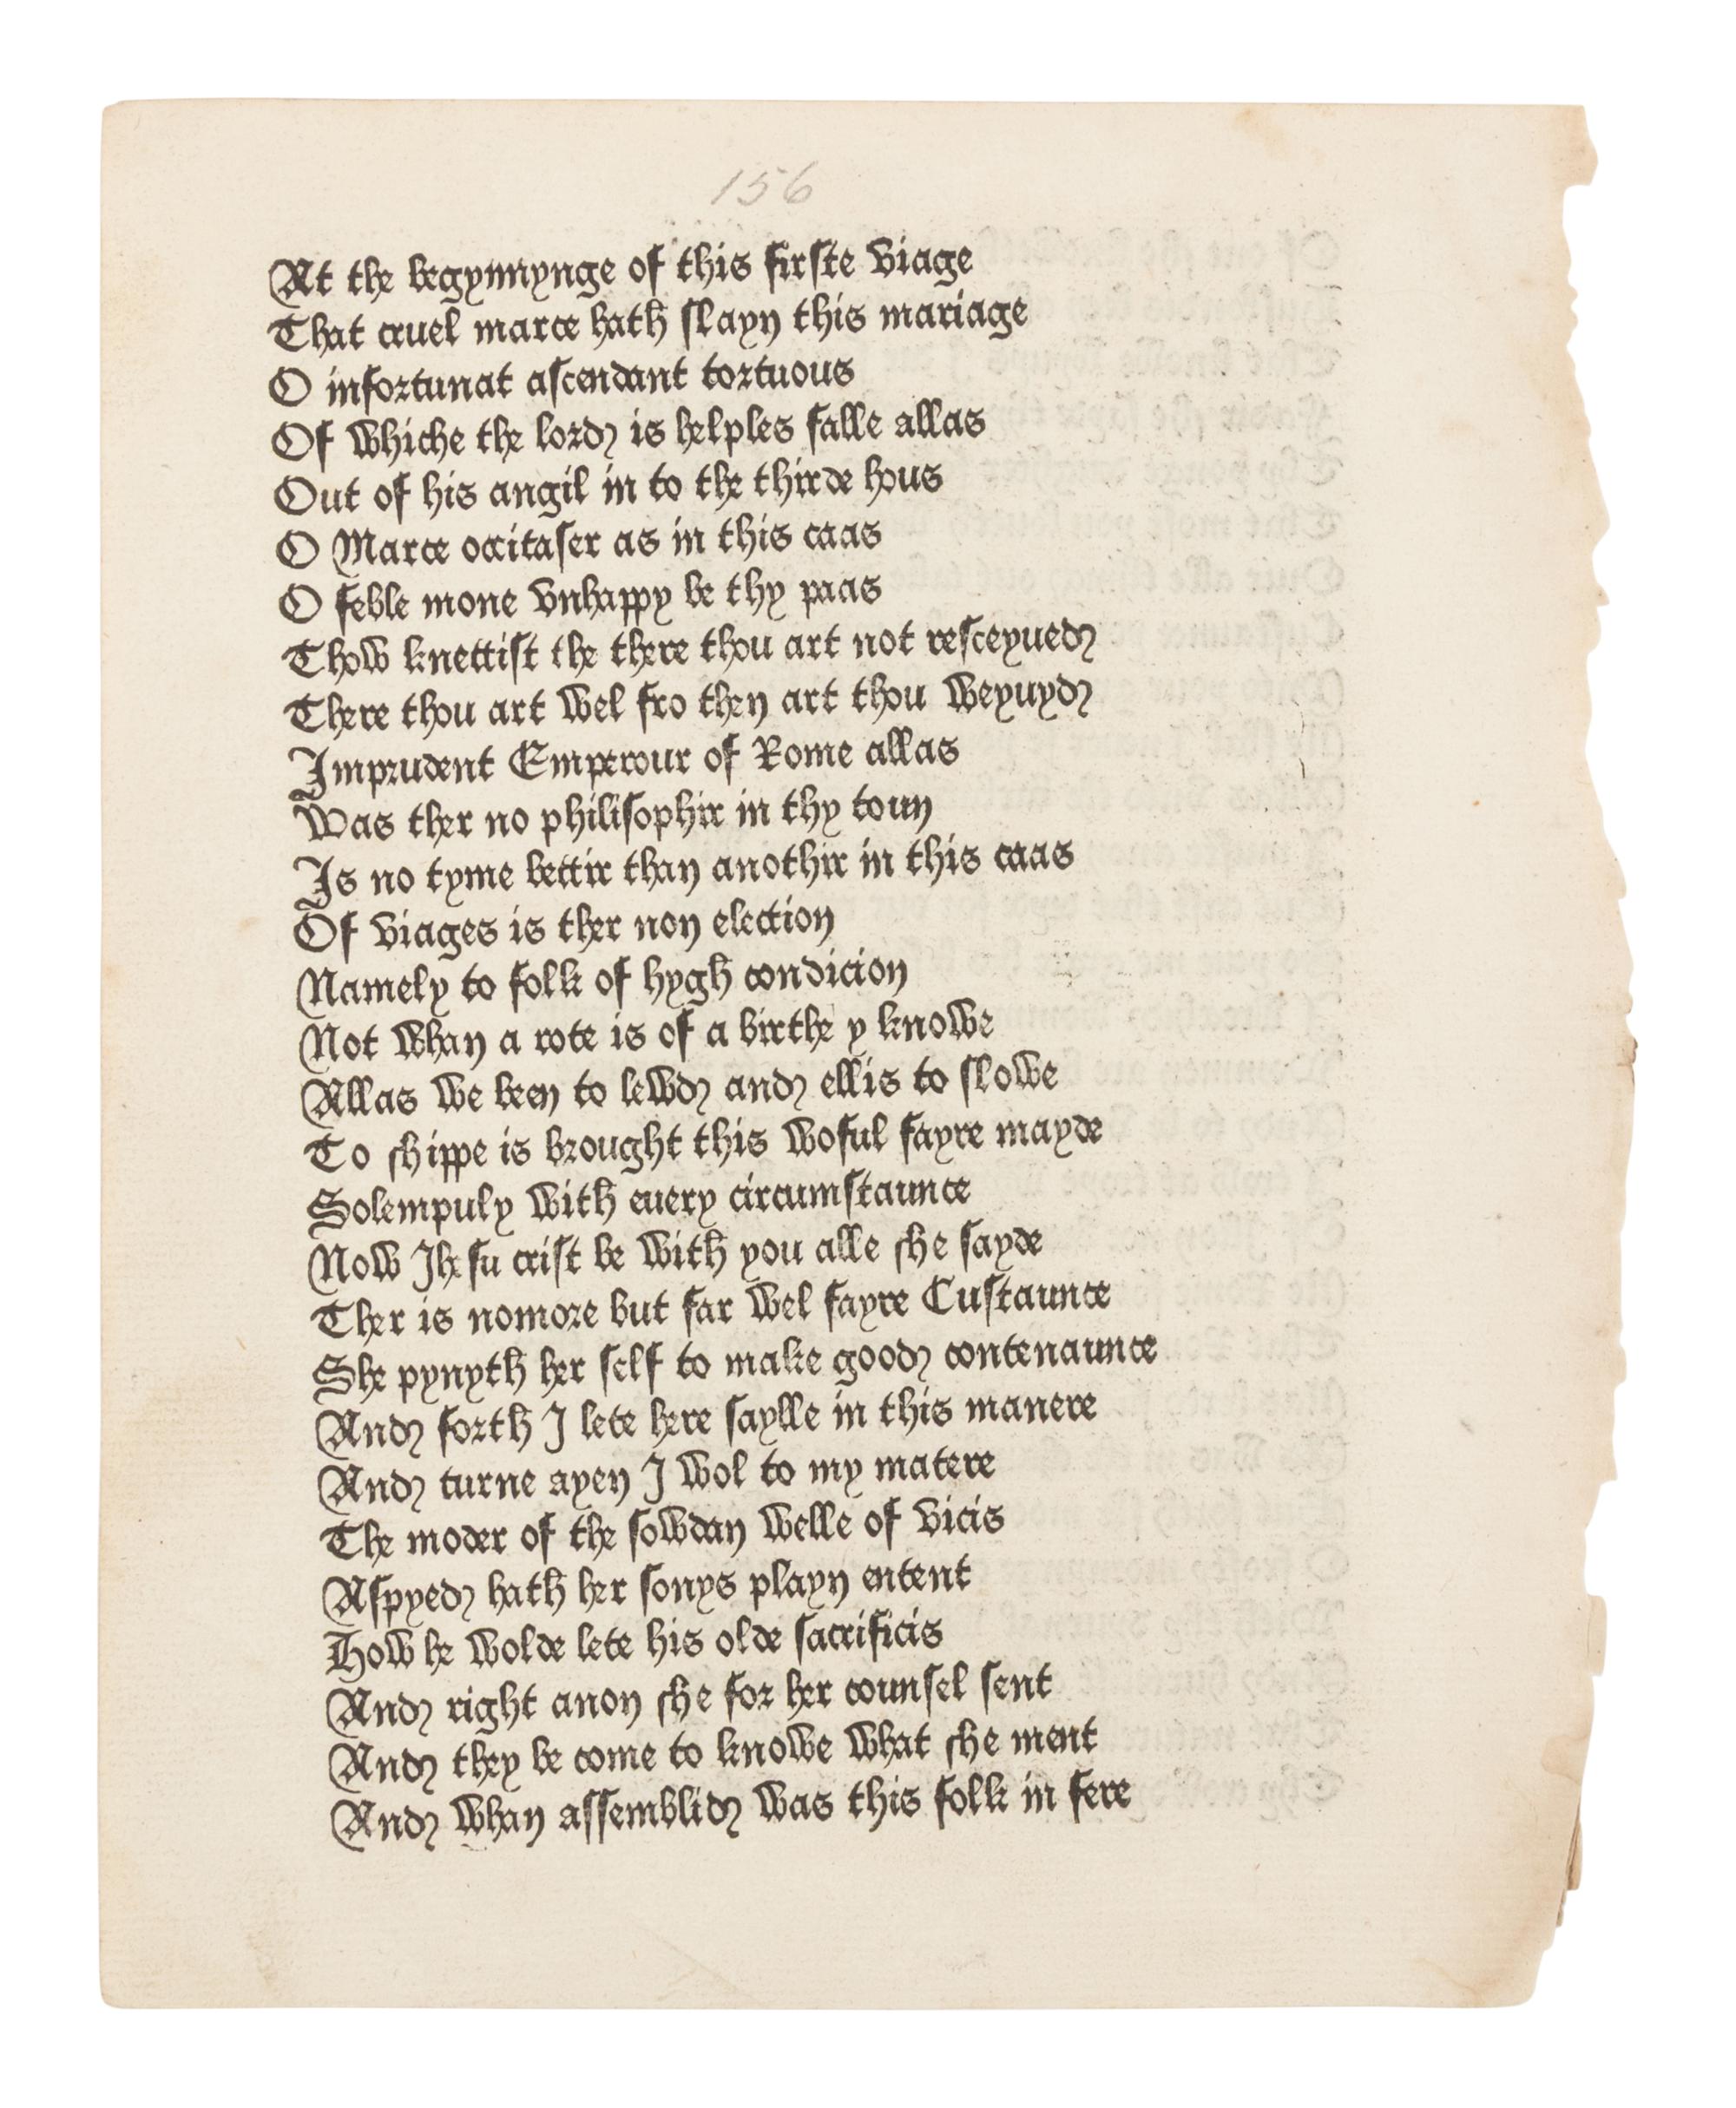 156
At the begynnynge of this firste viage
That cruel marce hath slayn this mariage
O infortunat ascendant tortuous
Of whiche the lord is helples falle allas
Out of his angil in to the thirde hous
O Marce occitaser as in this caas
O feble mone vnhappy be thy paas
Thow knettist the there thou art not resceyued
There thou art wel fro then art thou weyuyd
Imprudent Emperour of Rome allas
Was ther no philisophir in thy toun
Is no tyme bettir than anothir in this caas
Of viages is ther non election
Namely to folk of hygh condicion
Not whan a rote is of a birthe y knowe
Allas we been to lewd and ellis to slowe
To shippe is brought this woful fayre mayde
Solempuly with euery circumstaunce
Now Ihesu crist be with you alle she sayde
Ther is nomore but far wel fayre Custaunce
She pynyth her self to make good contenaunce
And forth I lete here saylle in this manere
And turne ayen I wol to my matere
The moder of the sowdan welle of vicis
Aspyed hath her sonys playn entent
How he wolde lete his olde sacrificis
And right anon she for her counsel sent
And they be come to knowe what she ment
And whan assemblid was this folk in fere